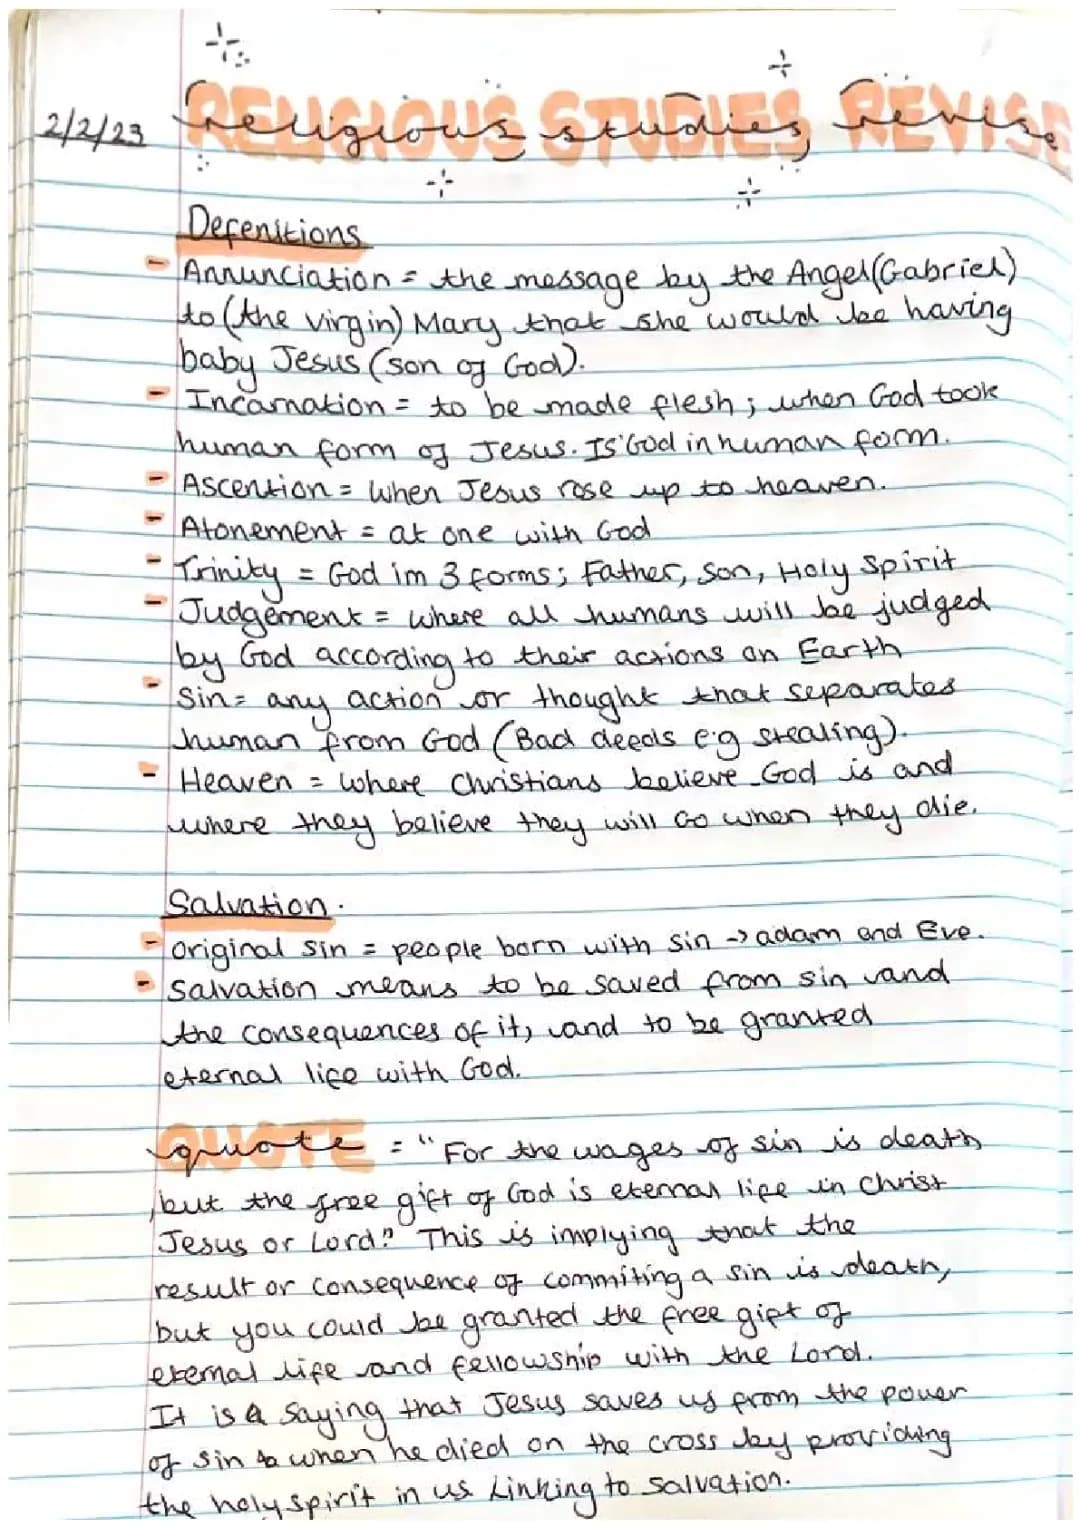 2/2/23 Religious studies Revise
RELIGIOUS STUDIES REVISE
Defenitions
- Annunciation = the message by the Angel (Gabriel)
to (the virgin) Mary that she would be having
baby Jesus (son of God).
- Incarnation = to be made flesh; when God took
human form of Jesus. Is God in human form.
- Ascention = when Jesus rose up to heaven.
- Atonement = at one with God
- Trinity = God im 3 forms; Father, Son, Holy Spirit
- Judgement = where all humans will be judged
by God according to their actions on Earth
- Sin = any action or thought that separates
human from God (Bad deeds e.g stealing).
- Heaven = where Christians believe God is and
where they believe they will Go when they die.
Salvation.
- original sin = people born with sin -> adam and Eve.
- Salvation means to be saved from sin and
the consequences of it, and to be granted
eternal life with God.
QUOTE
quote = "For the wages of sin is death
, but the free gift of God is eternal life in Christ
Jesus or Lord." This is implying that the
result or consequence of commiting a sin is death,
but you could be granted the free gift of
eternal life and fellowship with the Lord.
It is a saying that Jesus saves us from the power
of sin when he died on the cross by providing
the holy spirit in us linking to salvation.